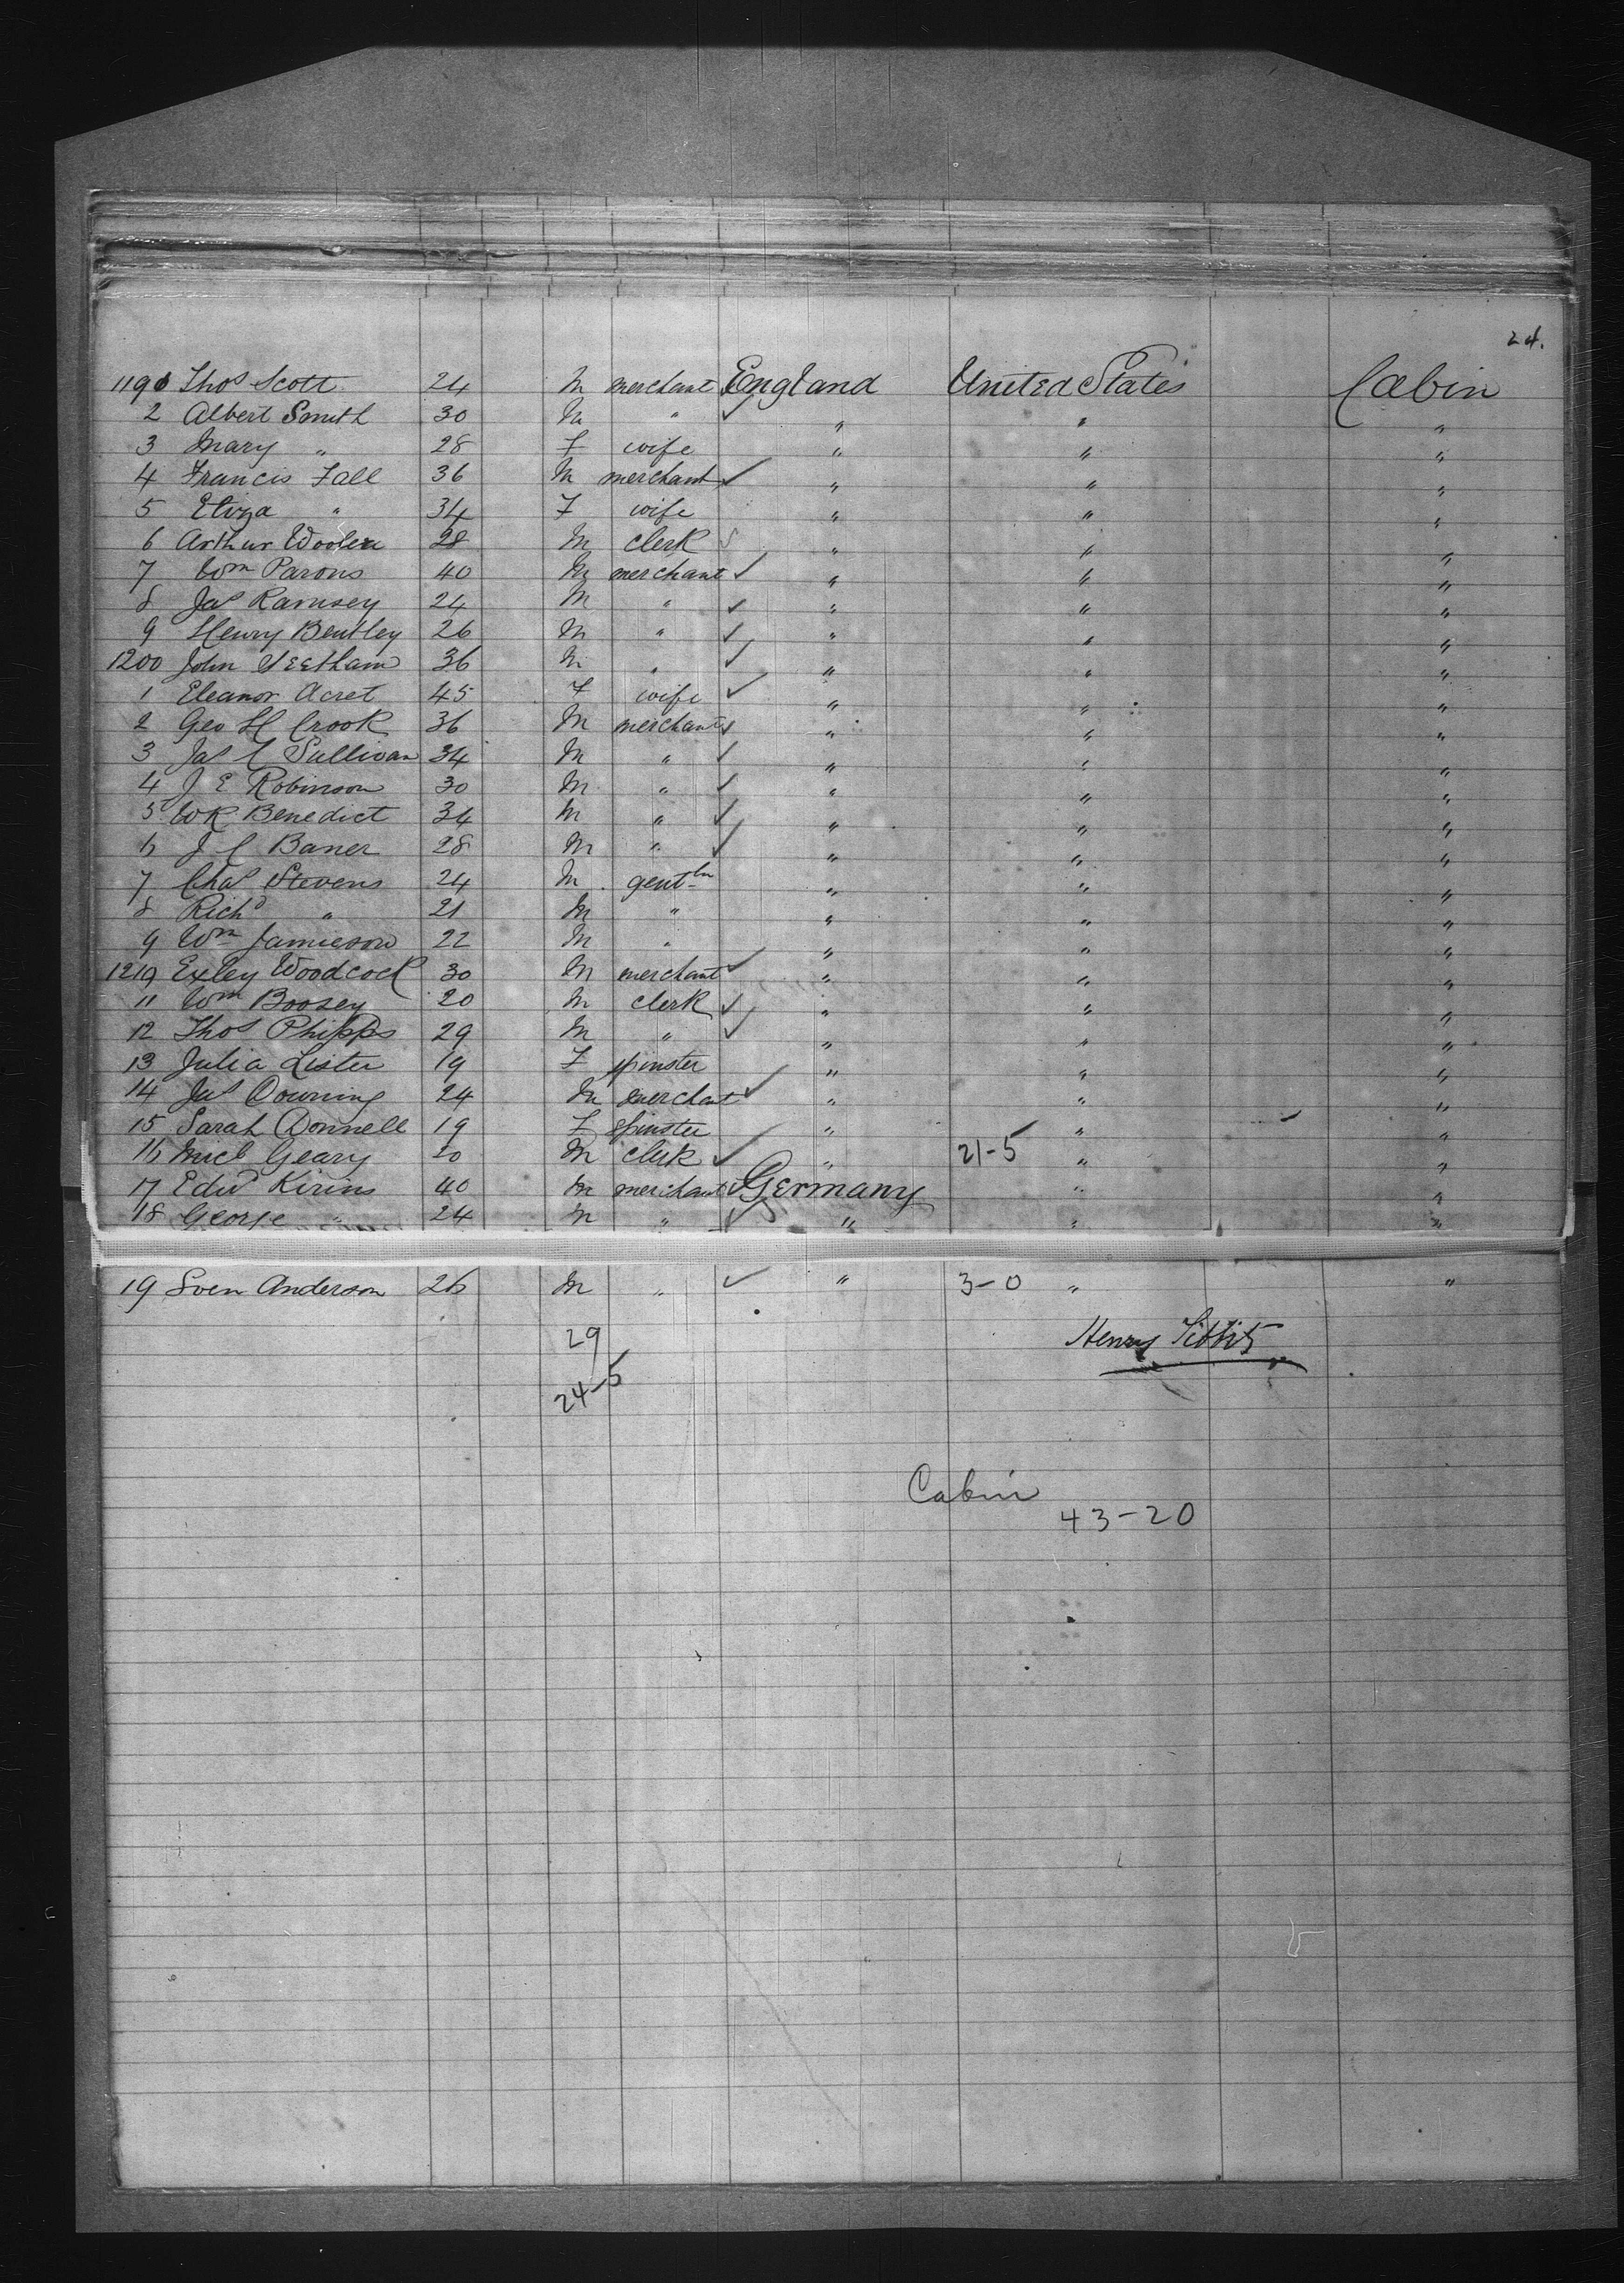 24.
1191 Thos Scott 24 M merchant England United States Cabin
2 Albert Smith 30 M " " " "
3 Mary " 28 F wife " " "
4 Francis Fall 36 M merchant " " "
5 Eliza " 34 F wife " " "
6 Arthur Woolen 28 M clerk " " "
7 Wm Parons 40 M merchant " " "
8 Jas Ramsey 24 M " " " "
9 Henry Bentley 26 M " " " "
1200 John Seetham 36 M " " " "
1 Eleanor Acret 45 F wife " " "
2 Geo H Crook 36 M merchant " " "
3 Jas C Sullivan 34 M " " " "
4 J E Robinson 30 M " " " "
5 W R Benedict 34 M " " " "
6 J C Baner 28 M " " " "
7 Chas Stevens 24 M gentln " " "
8 Richd " 21 M " " " "
9 Wm Jamieson 22 M " " " "
1210 Exley Woodcock 30 M merchant " " "
11 Wm Boosey 20 M clerk " " "
12 Thos Phipps 29 M " " " "
13 Julia Lister 19 F spinster " " "
14 Jas Downing 24 M merchant " " "
15 Sarah Donnell 19 F spinster " " "
16 Micl Geary 20 M clerk " 21-5 " "
17 Edwd Kirins 40 M merchant Germany " "
18 George " 24 M " " " "
19 Sven Anderson 26 M " " 3-0 " "
29 Henry Tibbits
24-5
Cabin
43-20